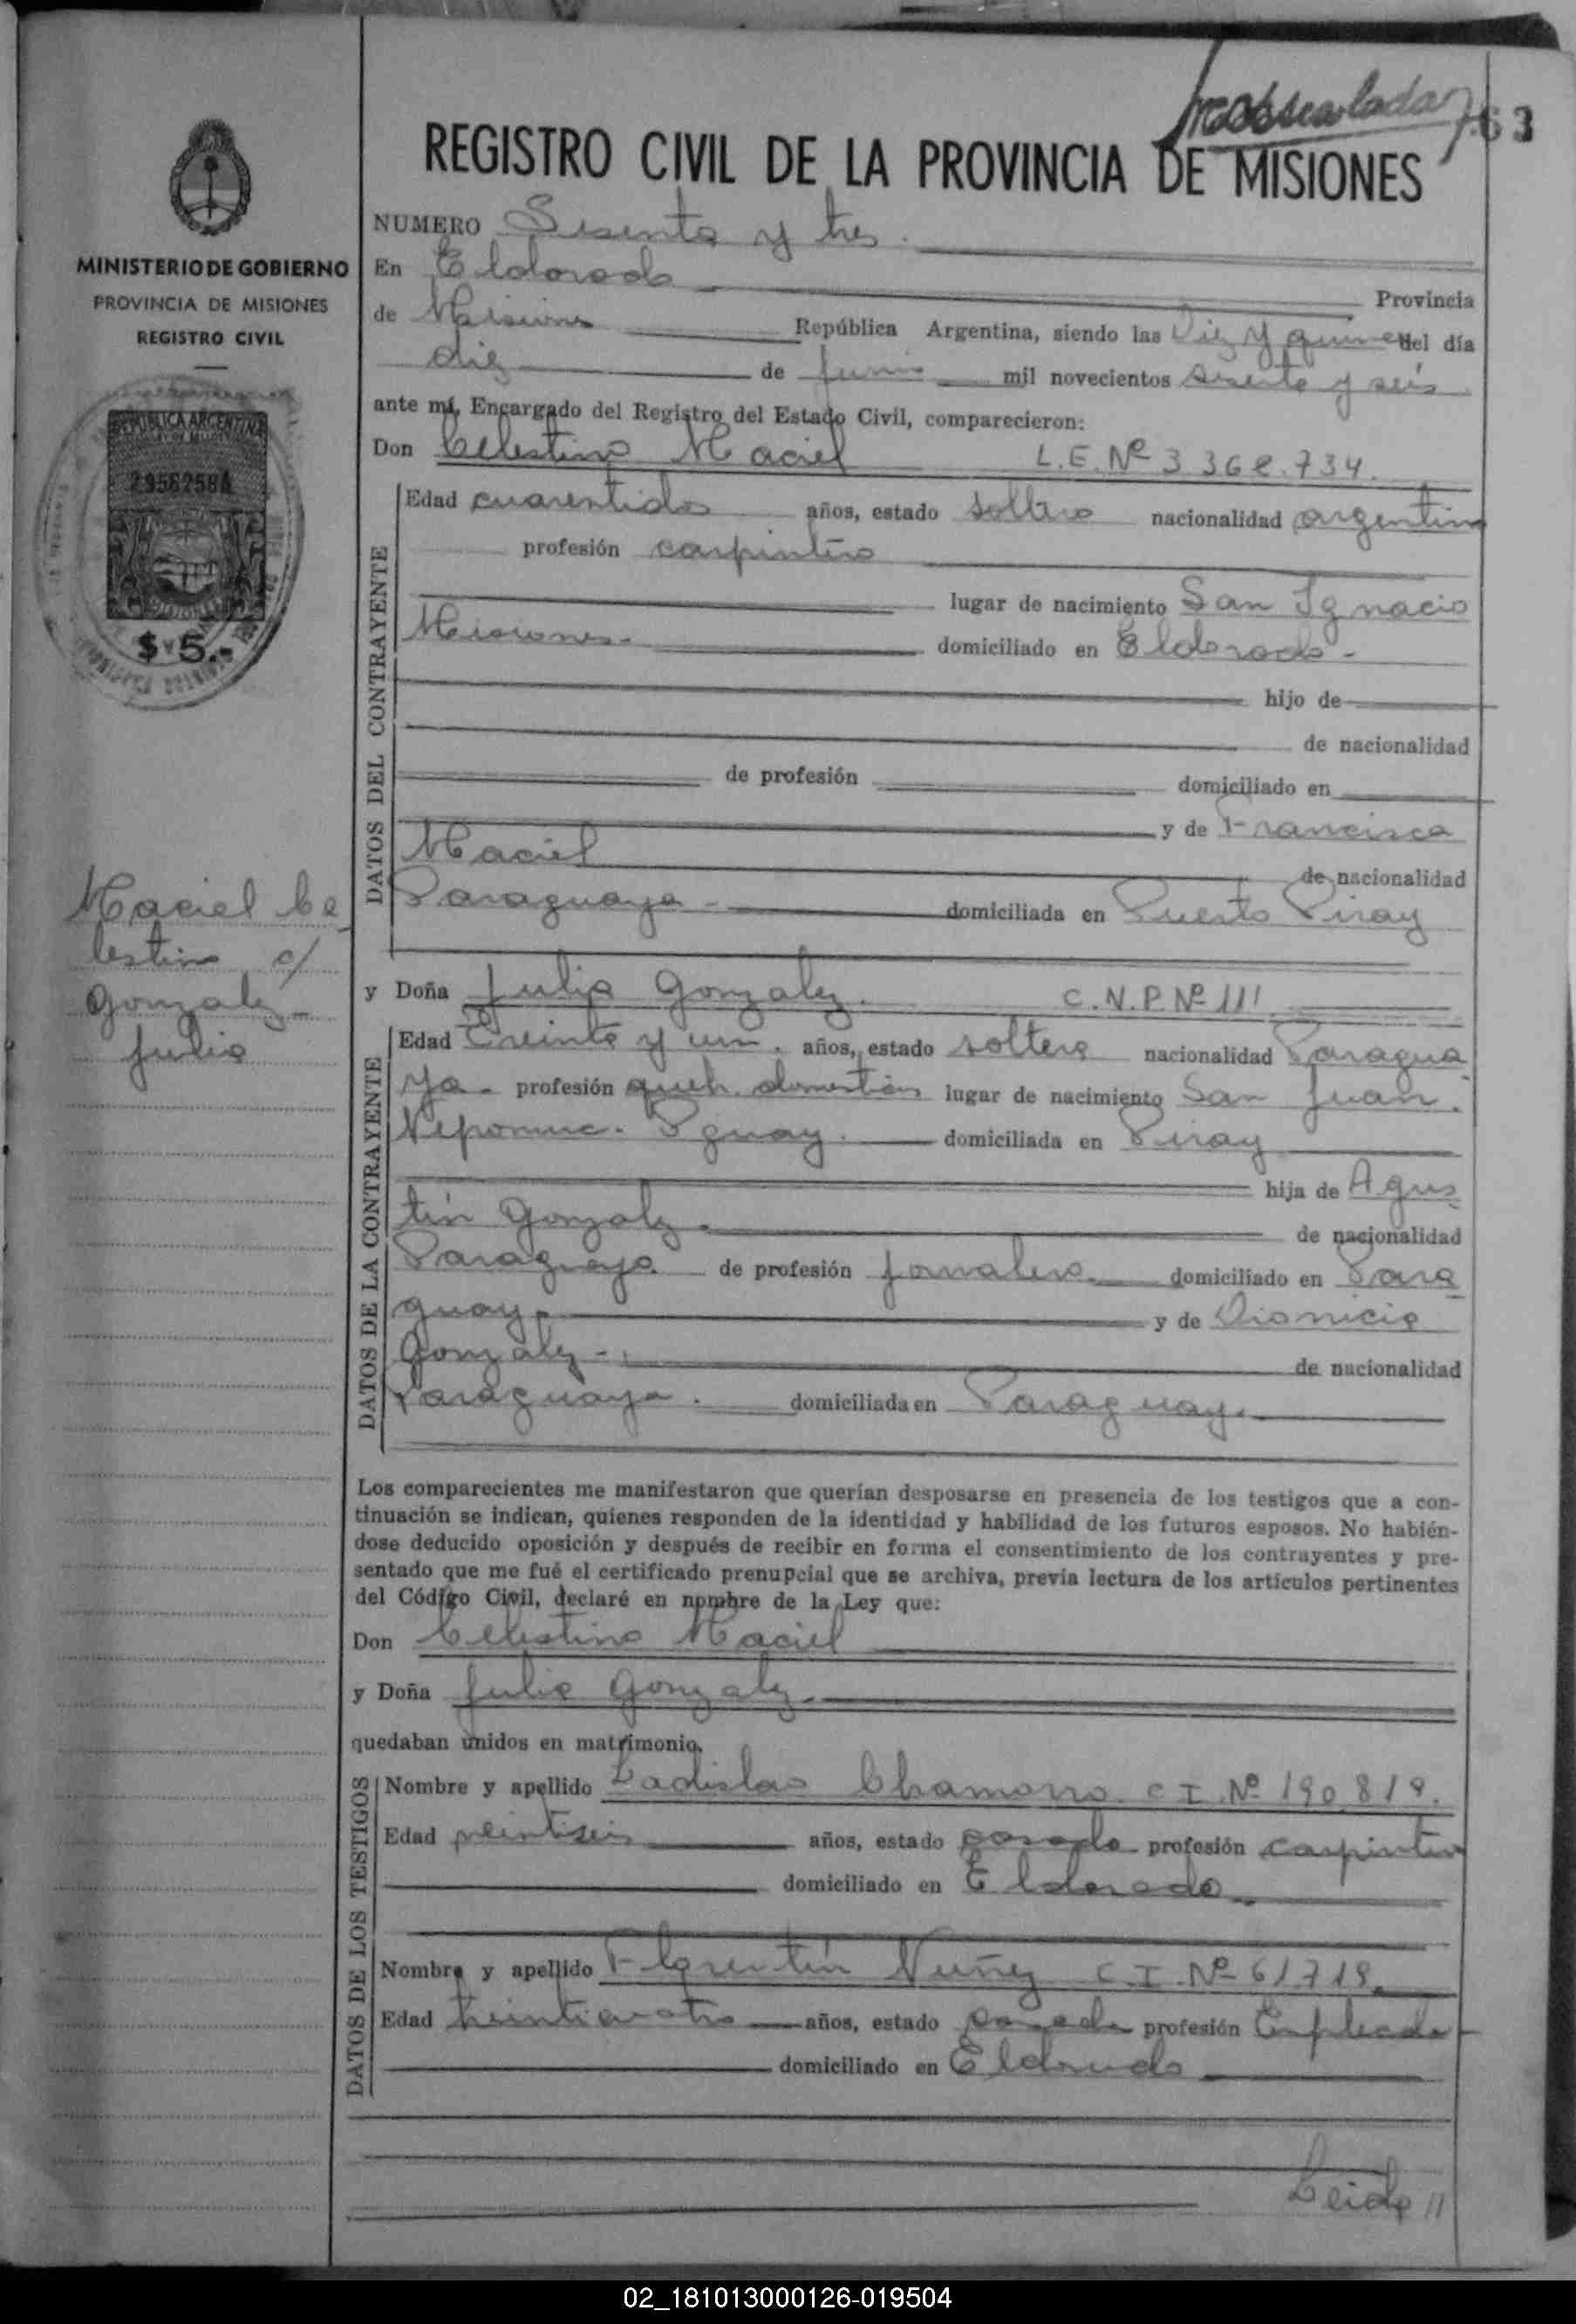 63
REGISTRO CIVIL DE LA PROVINCIA DE MISIONES
MINISTERIO DE GOBIERNO
PROVINCIA DE MISIONES
REGISTRO CIVIL
REPUBLICA ARGENTINA
$ 5.-
Maciel Ce
lestino c/
Gonzalez
Julia
NUMERO Sesenta y tres.
En Eldorado Provincia
de Misiones República Argentina, siendo las Diez y quince del día
diez de Junio mil novecientos sesenta y seis
ante mí, Encargado del Registro del Estado Civil, comparecieron:
Don Celestino Maciel L.E. Nº 3.368.734.
DATOS DEL CONTRAYENTE
Edad cuarentidos años, estado soltero nacionalidad argentino
profesión carpintero
lugar de nacimiento San Ignacio
Misiones.- domiciliado en Eldorado-
hijo de
de nacionalidad
de profesión domiciliado en
y de Francisca
Maciel de nacionalidad
Paraguaya- domiciliada en Puerto Piray
y Doña Julia Gonzalez. C.N.P. Nº 111
DATOS DE LA CONTRAYENTE
Edad Treinta y un. años, estado soltera nacionalidad Paragua
ya- profesión queh. domesticos lugar de nacimiento San Juan.
Nepomuc. Pguay. domiciliada en Piray
hija de Agus
tin Gonzalez. de nacionalidad
Paraguaya. de profesión jornalero. domiciliado en Para
guay- y de Dionicia
Gonzalez- de nacionalidad
Paraguaya. domiciliada en Paraguay.
Los comparecientes me manifestaron que querían desposarse en presencia de los testigos que a con-
tinuación se indican, quienes responden de la identidad y habilidad de los futuros esposos. No habién-
dose deducido oposición y después de recibir en forma el consentimiento de los contrayentes y pre-
sentado que me fué el certificado prenupcial que se archiva, previa lectura de los artículos pertinentes
del Código Civil, declaré en nombre de la Ley que:
Don Celestino Maciel
y Doña Julia Gonzalez.
quedaban unidos en matrimonio.
DATOS DE LOS TESTIGOS
Nombre y apellido Ladislao Chamorro C.I. Nº 190.819.
Edad veintiseis años, estado casado profesión carpintero
domiciliado en Eldorado
Nombre y apellido Florentín Nuñez C.I. Nº 61.719.
Edad treinticuatro años, estado casado profesión Empleado
domiciliado en Eldorado
Leida //
02_181013000126-019504